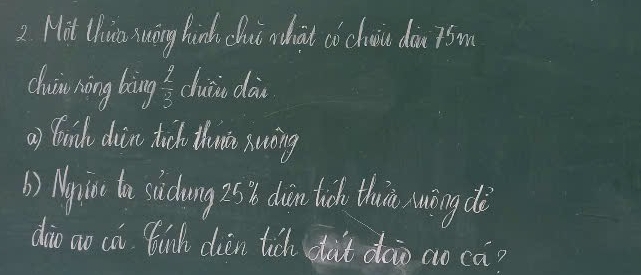 2. Một thửa ruộng hình chữ nhật có chiều dài 75m
chiều rộng bằng 2/3 chiều dài
a) Tính diện tích thửa ruộng
b) Người ta sử dụng 25% diện tích thửa ruộng để
đào ao cá. Tính diện tích đất đào ao cá?